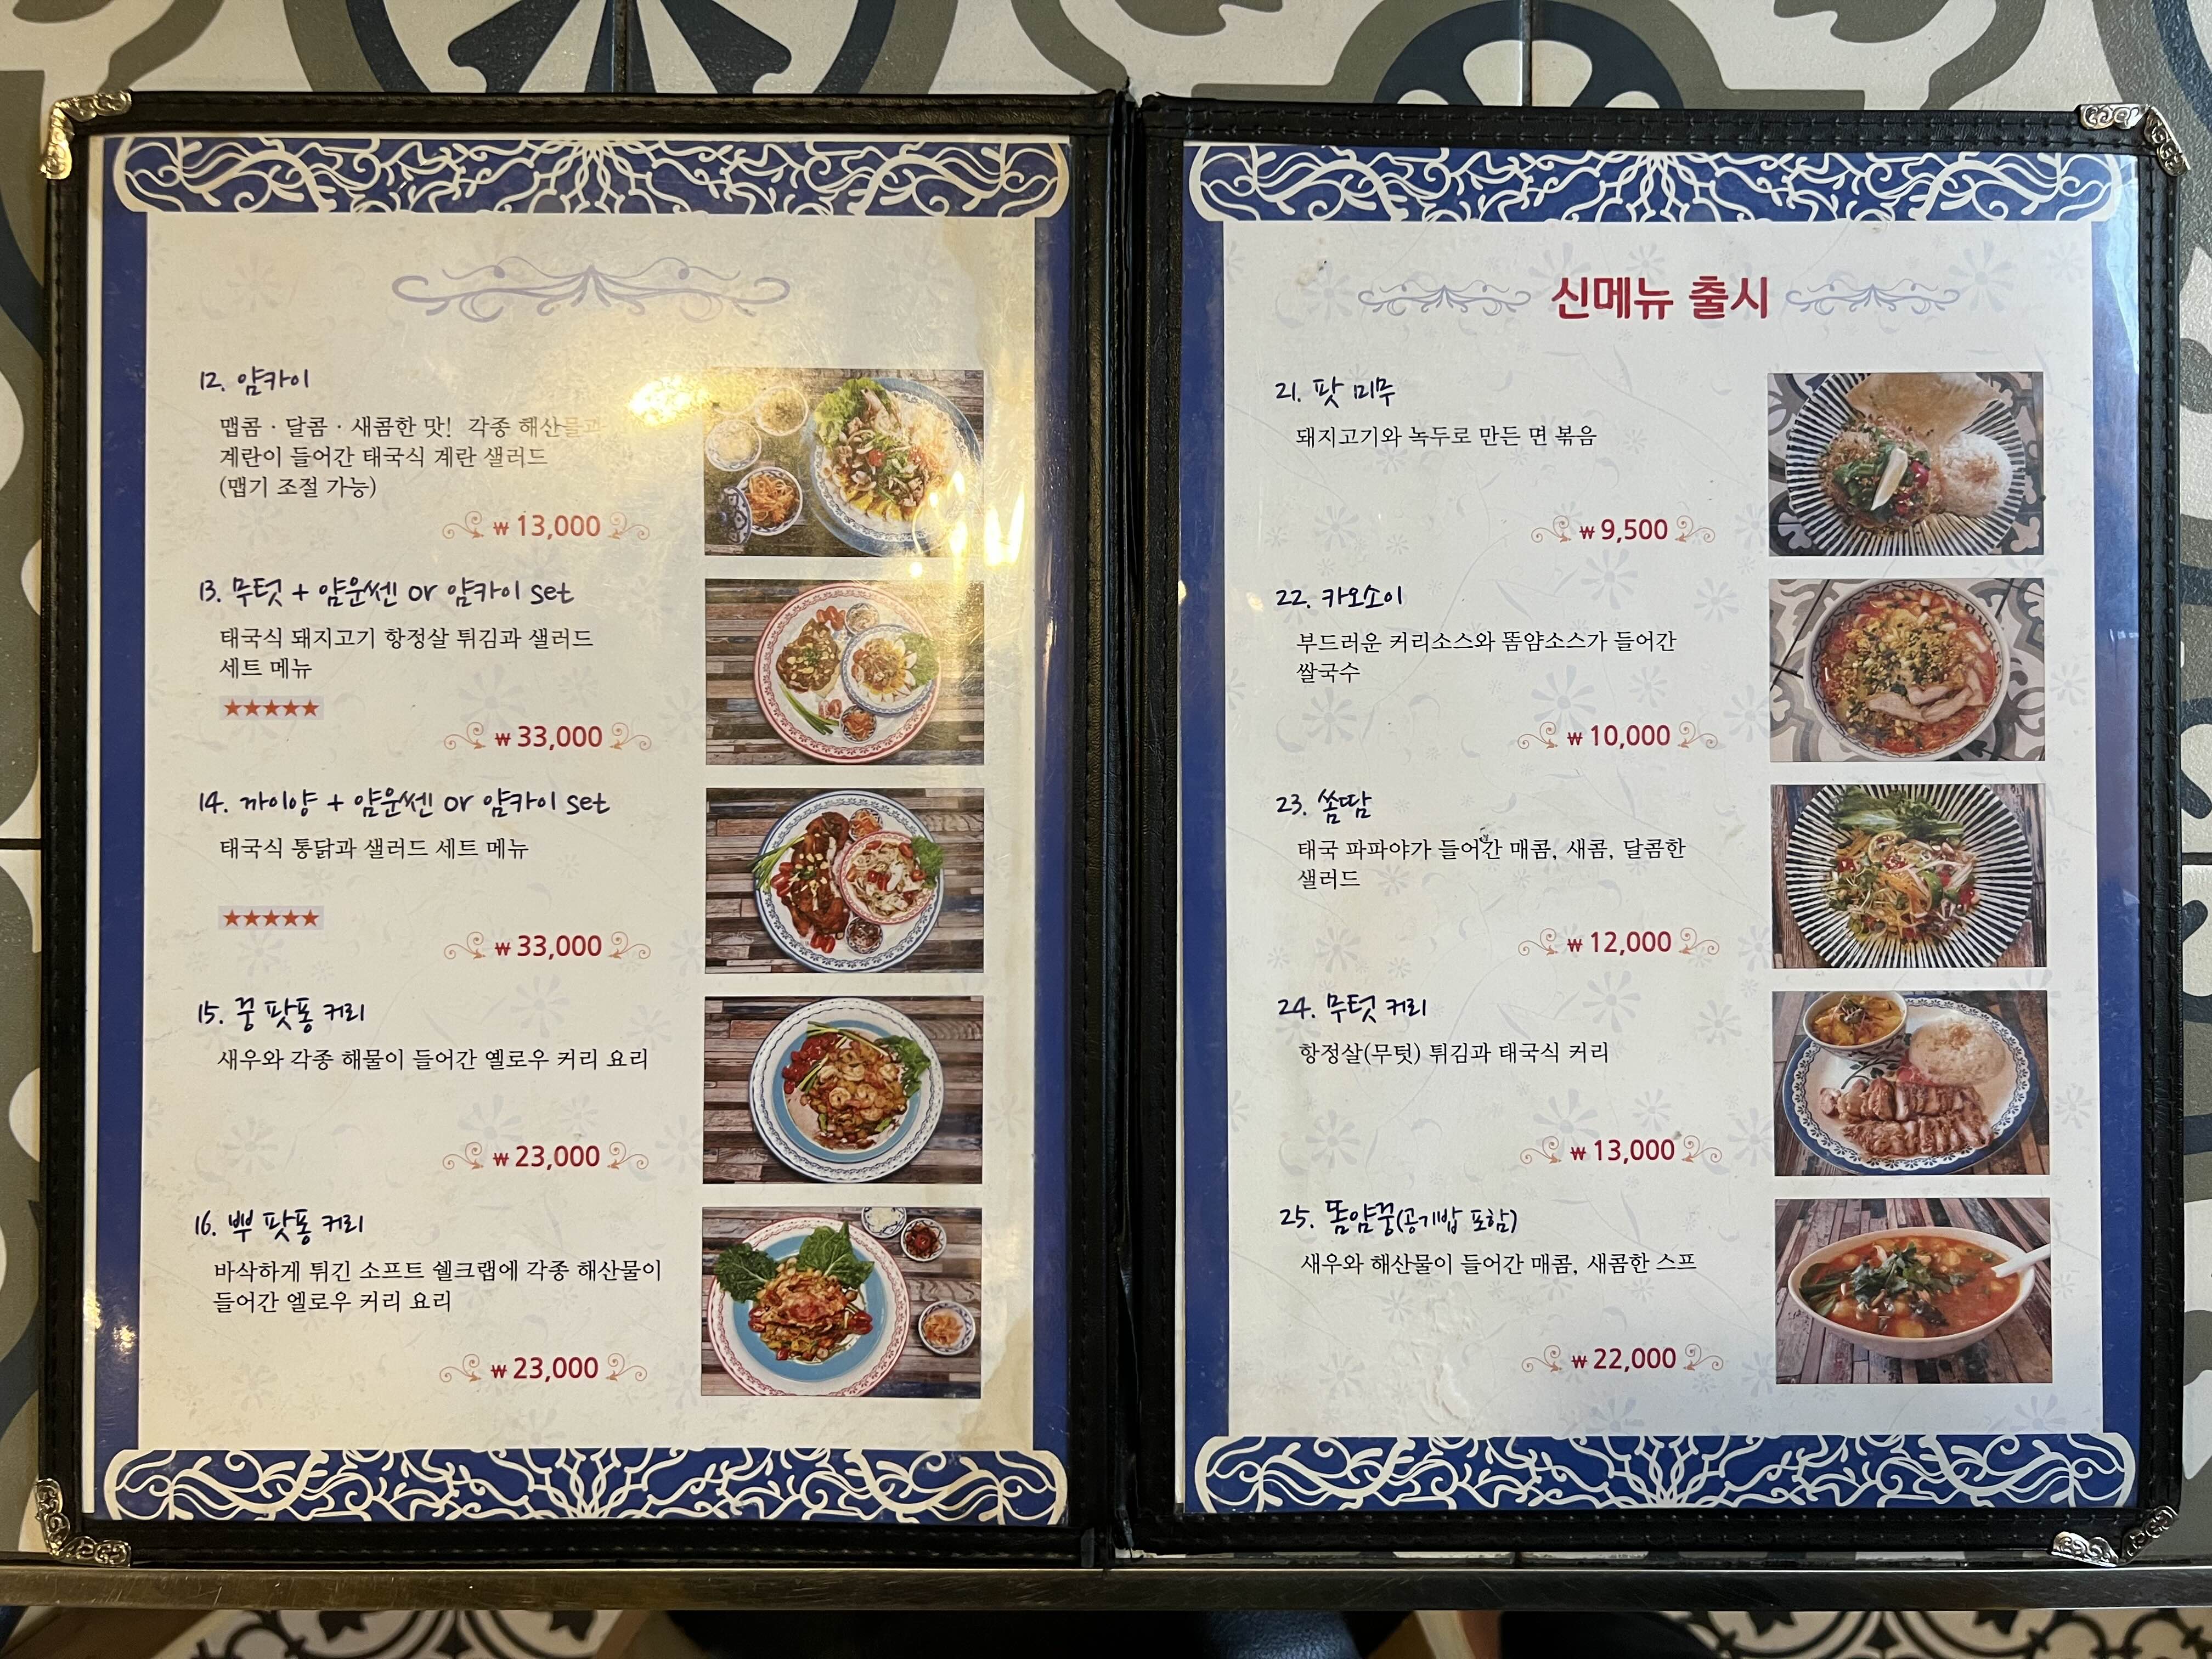 12. 얌카이
맵콤 · 달콤 · 새콤한 맛! 각종 해산물과
계란이 들어간 태국식 계란 샐러드
(맵기 조절 가능)
₩ 13,000
13. 무텃 + 얌운쎈 or 얌카이 set
태국식 돼지고기 항정살 튀김과 샐러드
세트 메뉴
★★★★★
₩ 33,000
14. 까이양 + 얌운쎈 or 얌카이 set
태국식 통닭과 샐러드 세트 메뉴
★★★★★
₩ 33,000
15. 꿍 팟퐁 커리
새우와 각종 해물이 들어간 옐로우 커리 요리
₩ 23,000
16. 뿌 팟퐁 커리
바삭하게 튀긴 소프트 쉘크랩에 각종 해산물이
들어간 엘로우 커리 요리
₩ 23,000
신메뉴 출시
21. 팟 미무
돼지고기와 녹두로 만든 면 볶음
₩ 9,500
22. 카오소이
부드러운 커리소스와 똠얌소스가 들어간
쌀국수
₩ 10,000
23. 쏨땀
태국 파파야가 들어간 매콤, 새콤, 달콤한
샐러드
₩ 12,000
24. 무텃 커리
항정살(무텃) 튀김과 태국식 커리
₩ 13,000
25. 똠얌꿍(공기밥 포함)
새우와 해산물이 들어간 매콤, 새콤한 스프
₩ 22,000